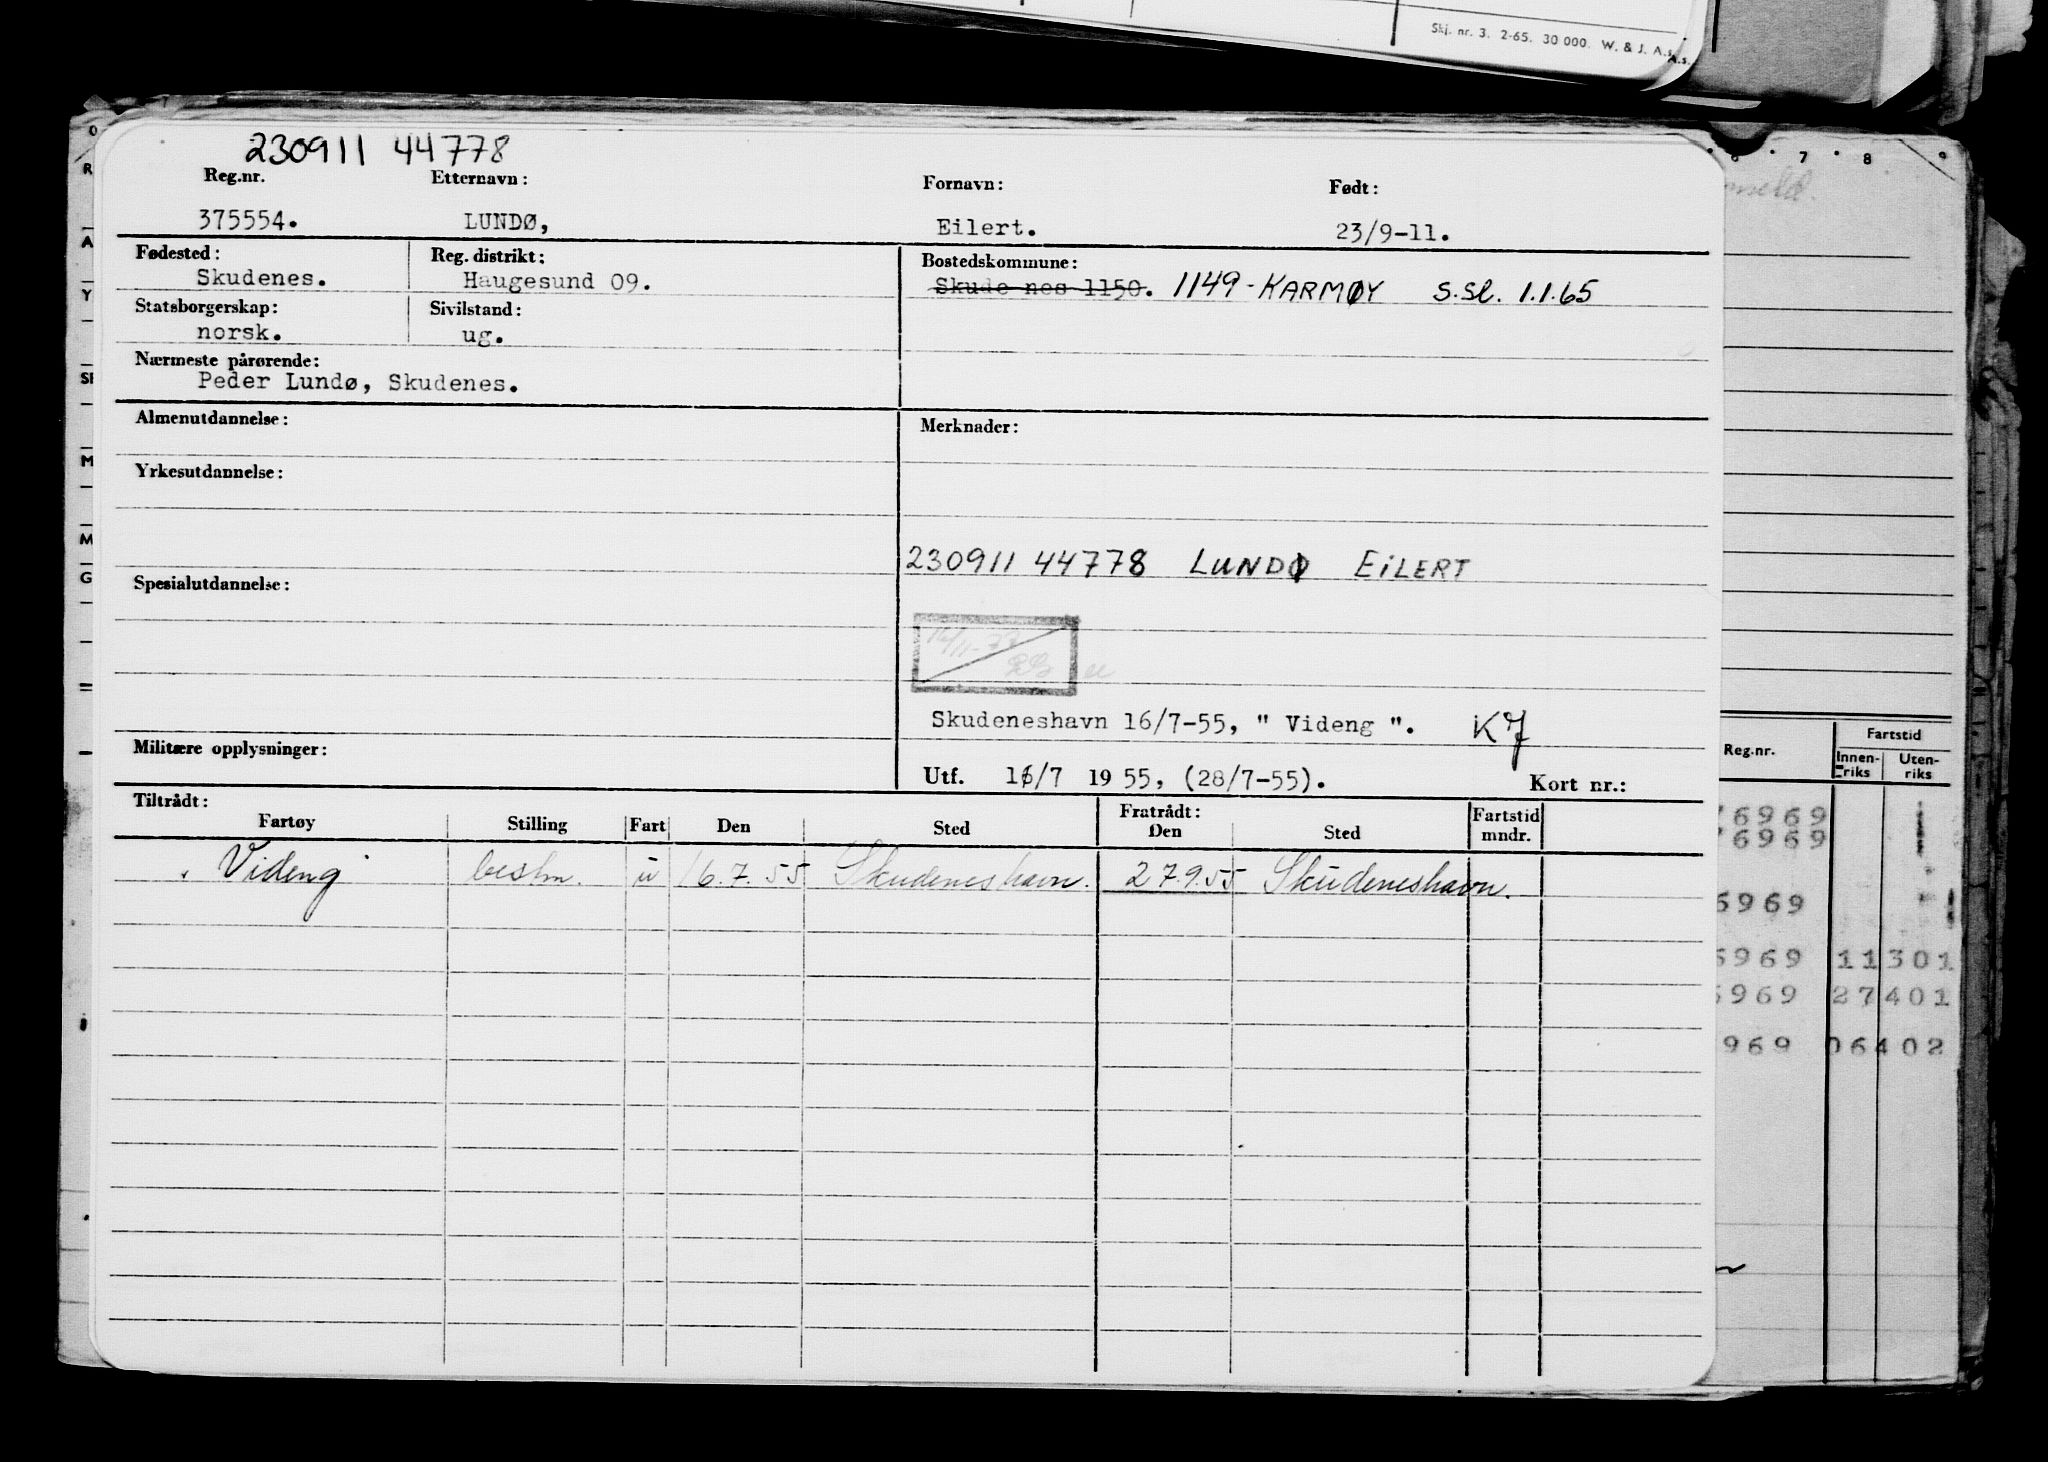 Skj. nr. 3. 2-65. 30 000. W. & J. A.s.
A.s.
230911 44778
Reg.nr. Etternavn: Fornavn: Født:
375554. LUNDØ, Eilert. 23/9-11.
Fødested: Reg. distrikt: Bostedskommune:
Skudenes. Haugesund 09. Skude nes 1150. 1149-KARMØY S.Sl. 1.1.65
Statsborgerskap: Sivilstand:
norsk. ug.
Nærmeste pårørende:
Peder Lundø, Skudenes.
Almenutdannelse: Merknader:
Yrkesutdannelse:
230911 44778 LUNDØ EILERT
Spesialutdannelse:
Skudeneshavn 16/7-55, " Videng ". KJ
Militære opplysninger:
Utf. 16/7 1955, (28/7-55). Kort nr.:
Tiltrådt: Fratrådt:
Fartøy Stilling Fart Den Sted Den Sted Fartstid mndr.
Videng bestm. u 16.7.55 Skudeneshavn. 27.9.55 Skudeneshavn.
6 7 8 9
Reg.nr. Fartstid
Innen-riks Uten-riks
6969
6969
6969
6969 11301
6969 27401
969 06402
O
R
A
Y
SI
M
M
G